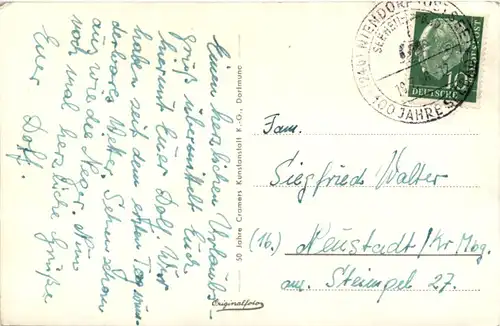 Einen herzlichen Urlaubs-
gruß übermittelt Euch
hiermit Euer Dolf. Wir
haben seit dem ersten Tag wun-
derbares Wetter. Schwer schon
aus wie die Neger. Nun
noch mal herzliche Grüße
Euer Dolf.
50 Jahre Cramers Kunstanstalt K.-G., Dortmund
Originalfoto
NIENDORF (OSTSEE)
100 JAHRE
10
DEUTSCHE
Fam.
Siegfried Walter
(16) Neustadt/Kr Mbg.
am Steimpel 27.